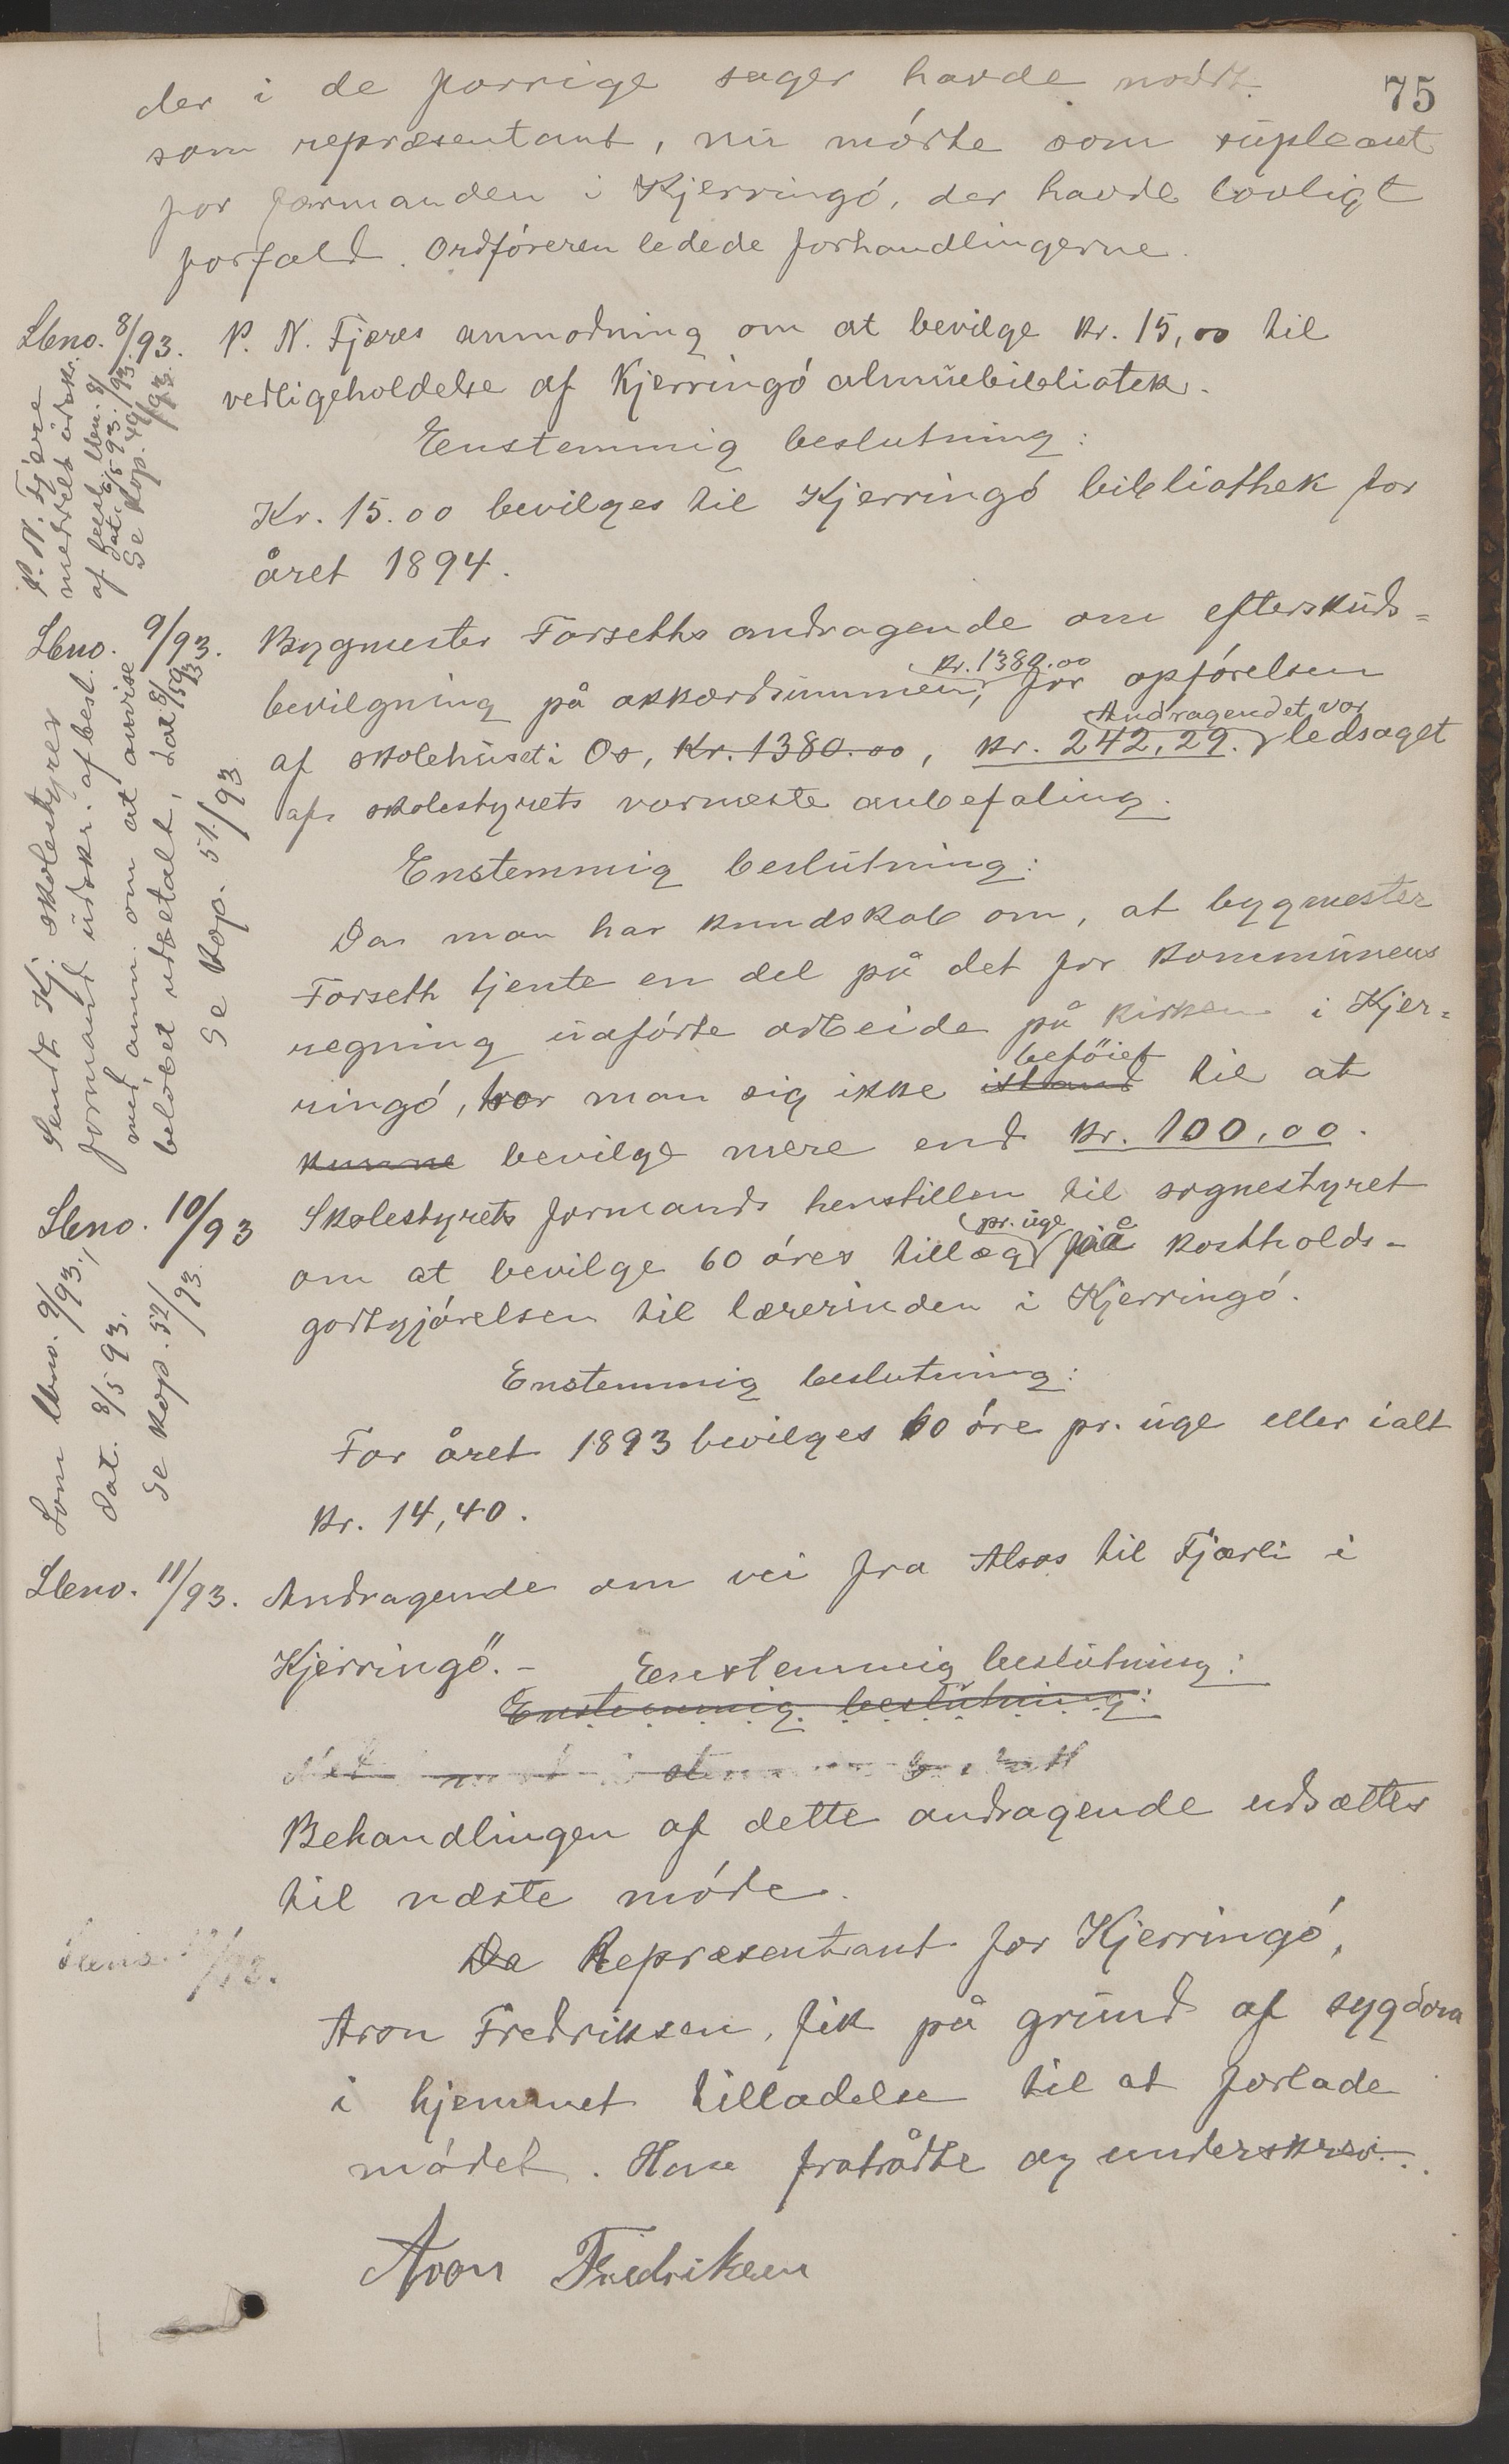 75
der i de forrige sager havde mødt
som repræsentant, nu mødte som supleant
for formanden i Kjerringó, der havde lovligt
forfald. Ordføreren ledede forhandlingerne.
Lbno. 8/93.
P. N. Fjæres anmodning om at bevilge kr. 15,00 til
vedligeholdelse af Kjerringó almuebibliotek.
Enstemmig beslutning:
Kr. 15.00 bevilges til Kjerringó bibliothek for
året 1894.
P. N. Fjære
meddelt udskr.
af besl. lbn. 8/93.
dat. 6/5 93.
Se kop. 49/93.
Lbno. 9/93.
Bygmester Forseths andragende om efterskuds-
bevilgning på akkordsummen, kr. 1380.00 for opførelsen
af skolehuset i Os, Kr. 1380.00, kr. 242,29. Andragendet var ledsaget
af skolestyrets varmeste anbefaling.
Enstemmig beslutning:
Da man har kundskab om, at bygmester
Forseth tjente en del på det for kommunens
regning udførte arbeide på kirken i Kjer-
ringó, har man sig ikke istand beføiet til at
kunne bevilge mere end kr. 100,00.
Sendt Kj. skolestyres
formand udskr. af besl.
med anm. om at anvise
beløbet udbetalt, dat 8/5 93
Se kop. 51/93
Lbno. 10/93
Skolestyrets formands henstillen til sognestyret
om at bevilge 60 øres tillæg pr. uge på kostholds-
godtgjørelsen til lærerinden i Kjerringó.
Enstemmig beslutning:
For året 1893 bevilges 60 øre pr. uge eller ialt
kr. 14,40.
Som lbno. 9/93,
dat. 8/5 93.
Se kop. 52/93.
Lbno. 11/93.
Andragende om vei fra Alsos til Fjærli i
Kjerringö. - Enstemmig beslutning:
Enstemmig beslutning:
Behandlingen af dette andragende udsættes
til næste møde.
Da Repræsentant for Kjerringó,
Aron Fredriksen, fik på grund af sygdom
i hjemmet tilladelse til at forlade
mødet. Han fratrådte og underskrev.
Aron Fredriksen